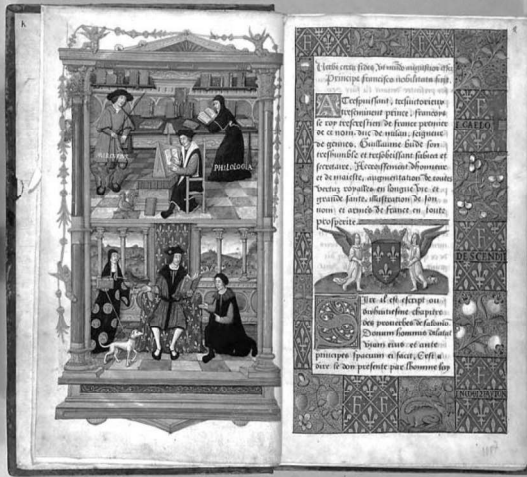 K
MERCVRIVS
PHILOLOGIA
Principe francisco nobilitata suis
A Trespuissant, tresvictorieux
et treseminent prince, françoys
le roy treschrestien de france premier
de ce nom, duc de milan, seigneur
de gennes, Guillaume bude son
treshumble et tresobeissant subiect et
secretaire, Accroissement dhonneur
et de maieste, augmentation de toutes
vertus royalles en longue vie et
grande sante, illustration de son
nom et armes de france en toute
prosperite
SIre il est escript ou
dixhuitiesme chapitre
des proverbes de salomon
Donum hominis dilatat
viam eius et ante
principes spacium ei facit, Cest a
dire le don presente par lhomme luy
F
F
E CAELO
DESCENDIT
F
F